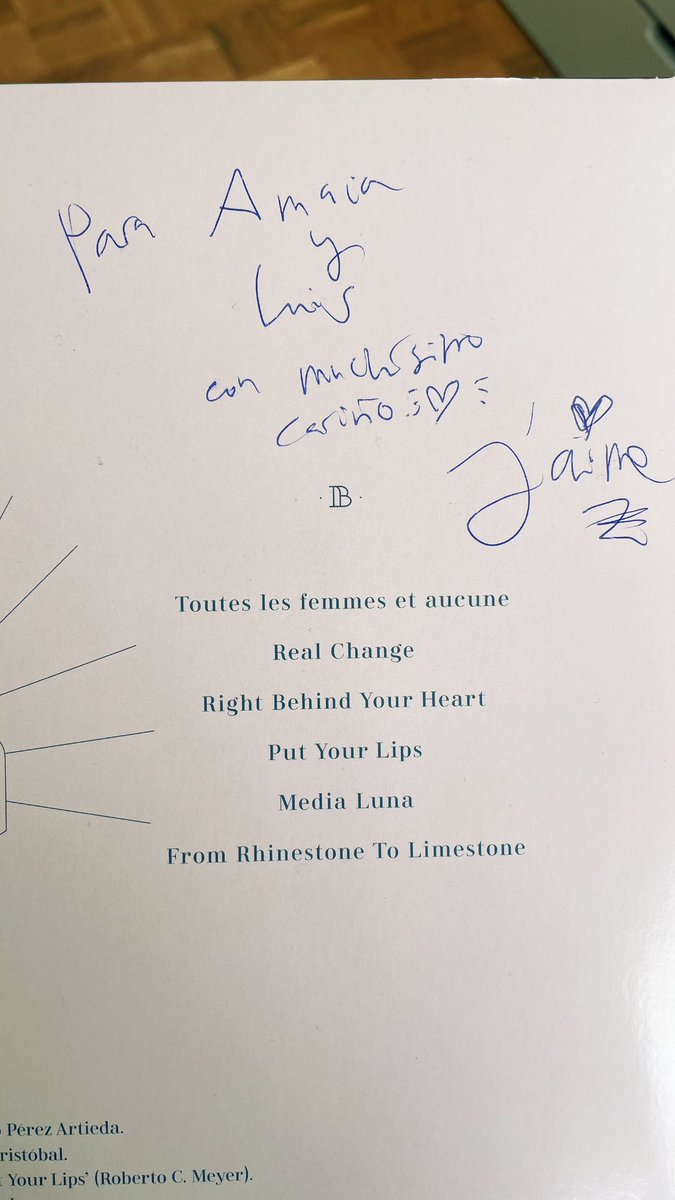 Para Amaia
y
Luis
con muchísimo
cariño
J'aime
· B ·
Toutes les femmes et aucune
Real Change
Right Behind Your Heart
Put Your Lips
Media Luna
From Rhinestone To Limestone
Pérez Artieda.
ristóbal.
t Your Lips’ (Roberto C. Meyer).